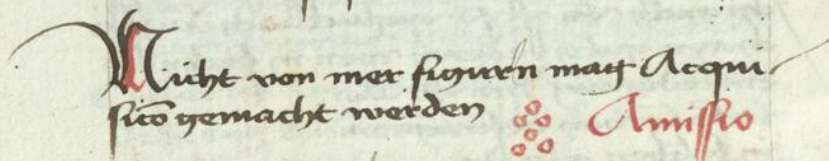 Nicht von mer figurn mag Acqui-
sicō gemacht werden
Amissio